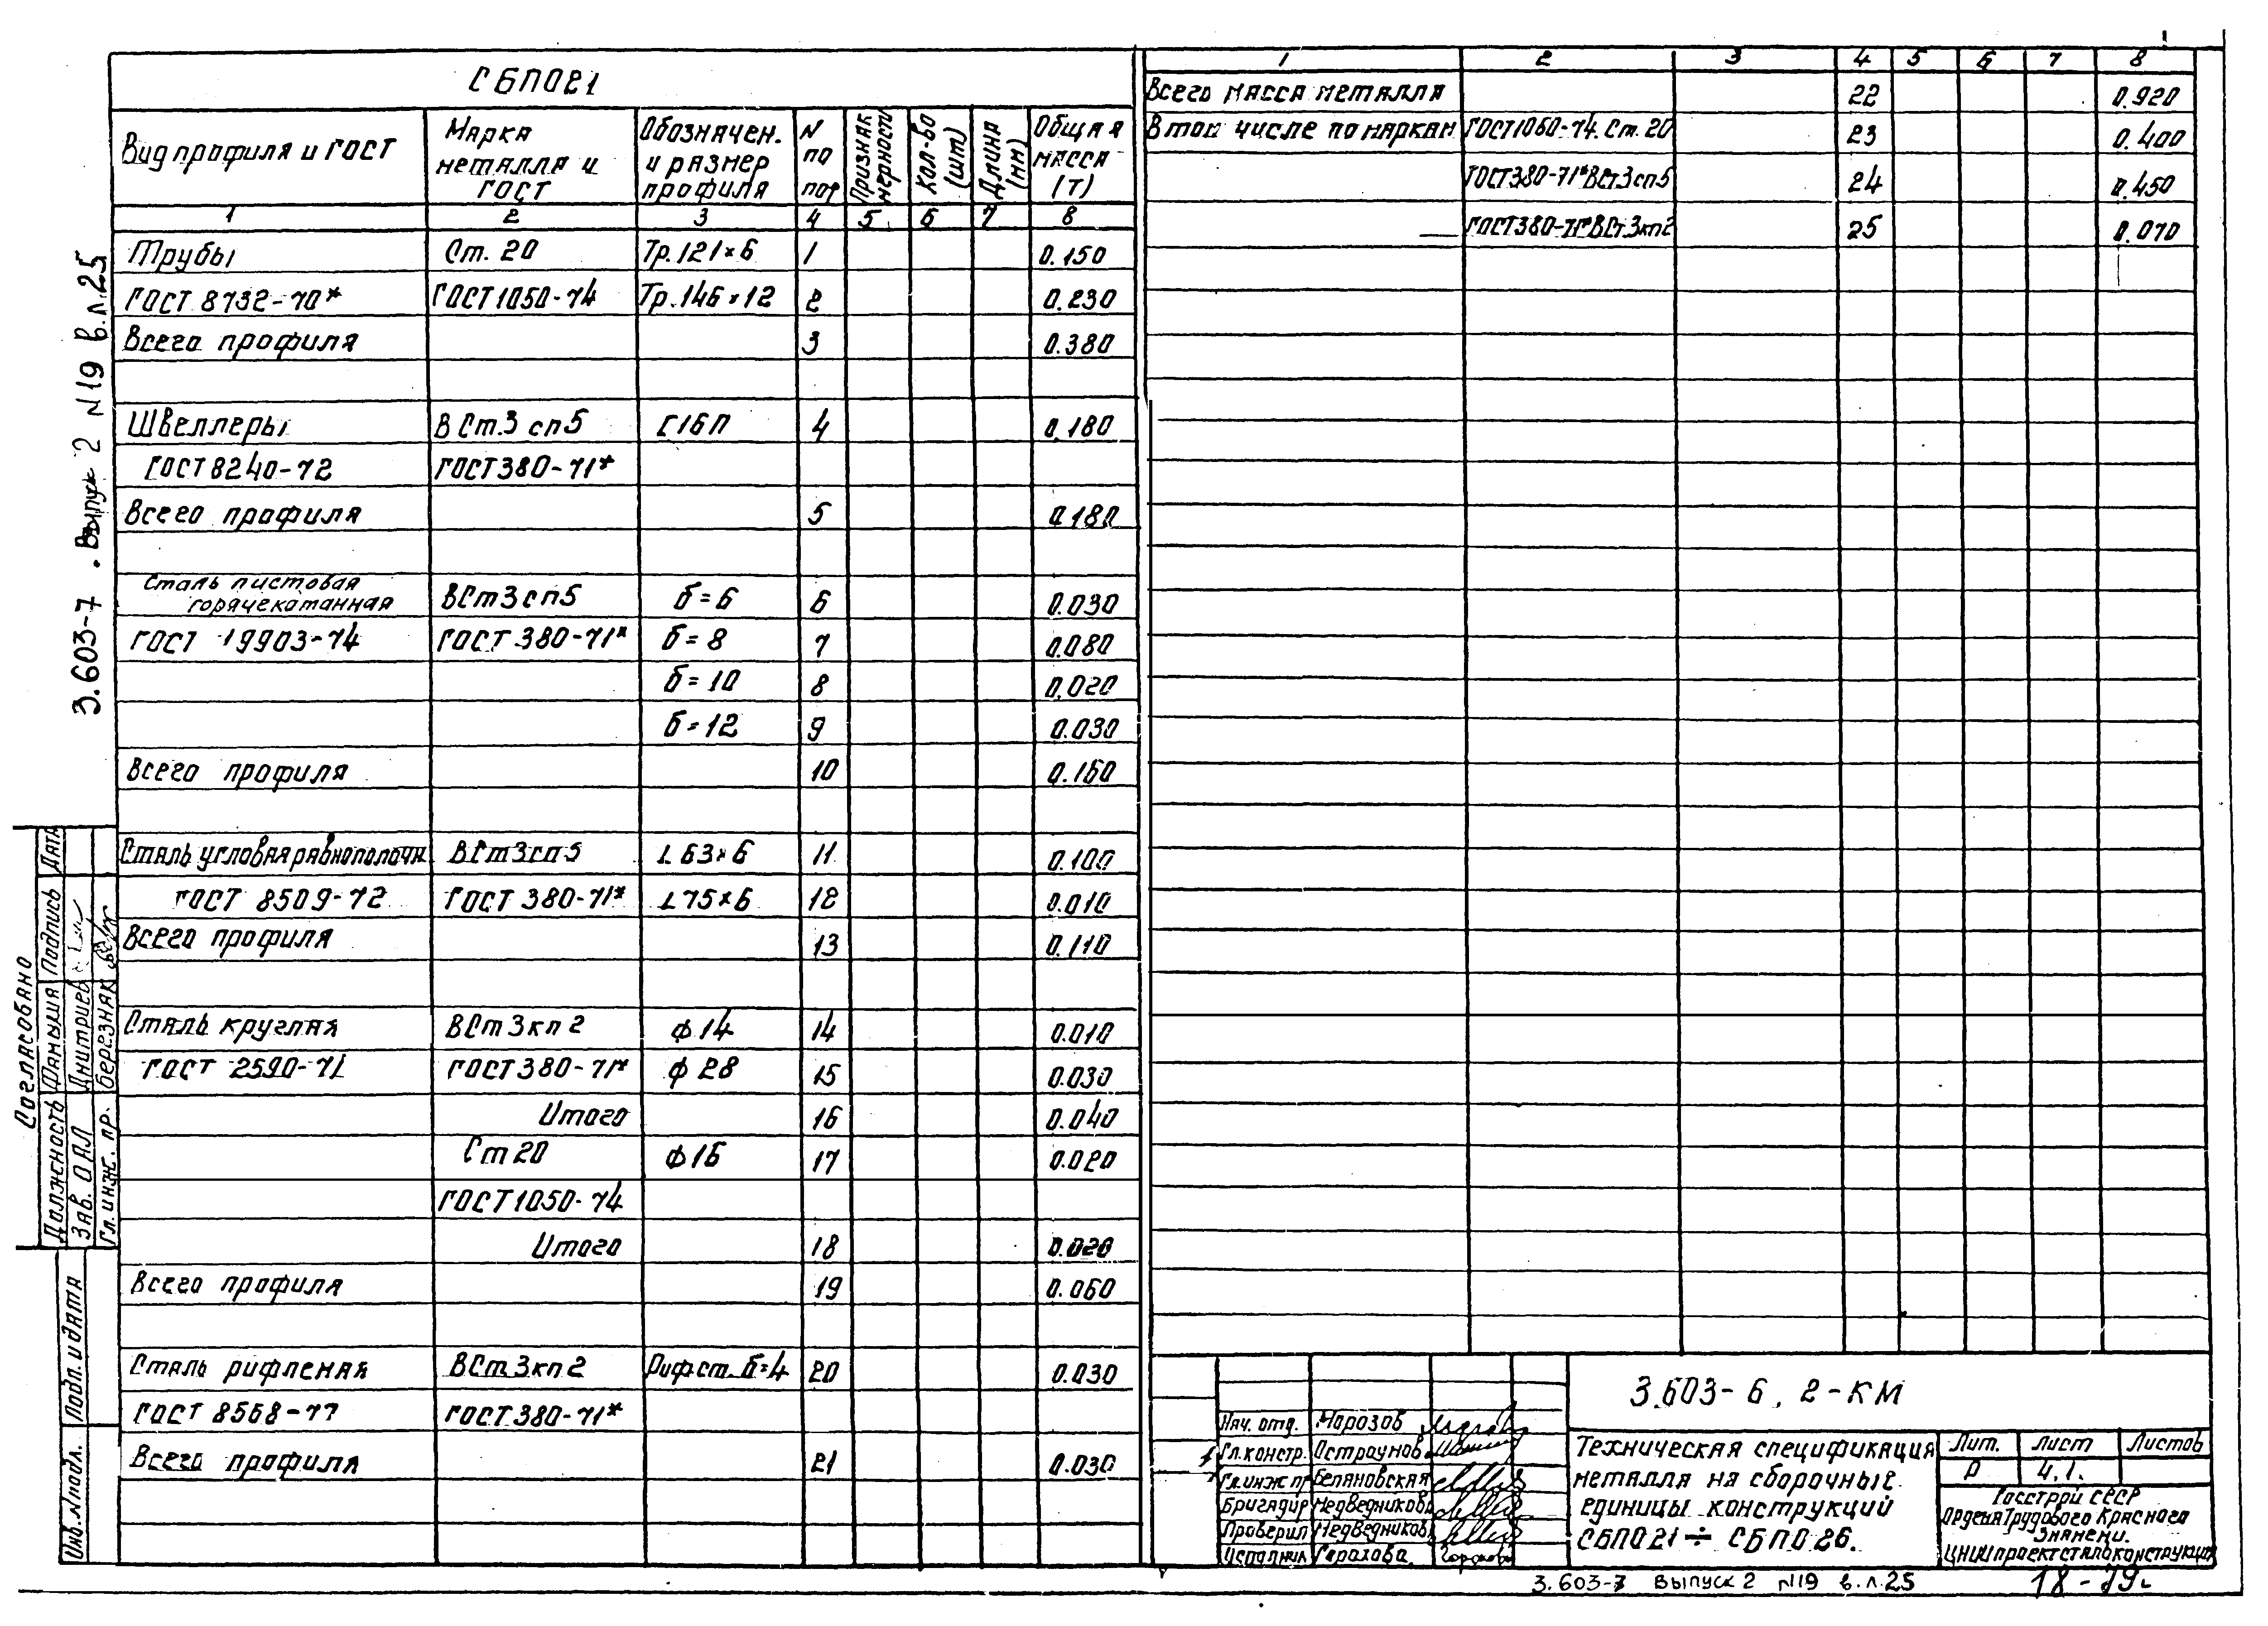 СБПО21
Вид профиля и ГОСТ | Марка металла и ГОСТ | Обозначен. и размер профиля | N по пор | Признак мерности | Кол-во (шт) | Длина (мм) | Общая масса (т)
1 2 3 4 5 6 7 8
Трубы Ст. 20 Тр.121×6 1 0.150
ГОСТ 8732-70* ГОСТ1050-74 Тр.146×12 2 0.230
Всего профиля 3 0.380
Швеллеры ВСт.3 сп5 [16П 4 0.180
ГОСТ8240-72 ГОСТ380-71*
Всего профиля 5 0.180
Сталь листовая
горячекатанная ВСт3сп5 б=6 6 0.030
ГОСТ 19903-74 ГОСТ 380-71* б=8 7 0.080
б=10 8 0.020
б=12 9 0.030
Всего профиля 10 0.160
Сталь угловая равнополочн ВСт3сп5 L63×6 11 0.100
ГОСТ 8509-72 ГОСТ 380-71* L75×6 12 0.010
Всего профиля 13 0.110
Сталь круглая ВСт3кп2 ф14 14 0.010
ГОСТ 2590-71 ГОСТ380-71* ф28 15 0.030
Итого 16 0.040
Ст20 ф16 17 0.020
ГОСТ1050-74
Итого 18 0.020
Всего профиля 19 0.060
Сталь рифленая ВСт3кп2 Риф.ст. б=4 20 0.030
ГОСТ 8568-77 ГОСТ380-71*
Всего профиля 21 0.030
1 2 3 4 5 6 7 8
Всего масса металла 22 0.920
В том числе по маркам ГОСТ1050-74. Ст. 20 23 0.400
ГОСТ380-71*ВСт3сп5 24 0.450
ГОСТ380-71*ВСт3кп2 25 0.070
3.603-7 . Выпуск 2 N19 в.л.25
Согласовано
Должность Фамилия Подпись Дата
Зав. ОАЛ Дмитриев
Гл. инж. пр. Березняк
Подп. и дата
Инв. N подл.
Нач. отд. Морозов
Гл.констр. Остроумов
Гл.инж пр Беляновская
Бригадир Медведникова
Проверил Медведников
Исполнил Горохова
3.603-6. 2-КМ
Техническая спецификация
металла на сборочные
единицы конструкций
СБПО21÷СБПО26.
Лит. Лист Листов
Р 4.1.
Госстрой СССР
Ордена Трудового Красного
Знамени.
ЦНИИпроектстальконструкция
3.603-7 Выпуск 2 N19 в.л.25